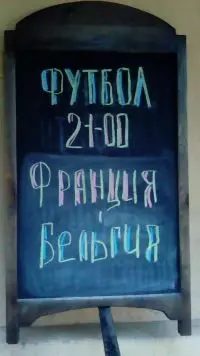 ФУТБОЛ
21-00
Франция
Бельгия